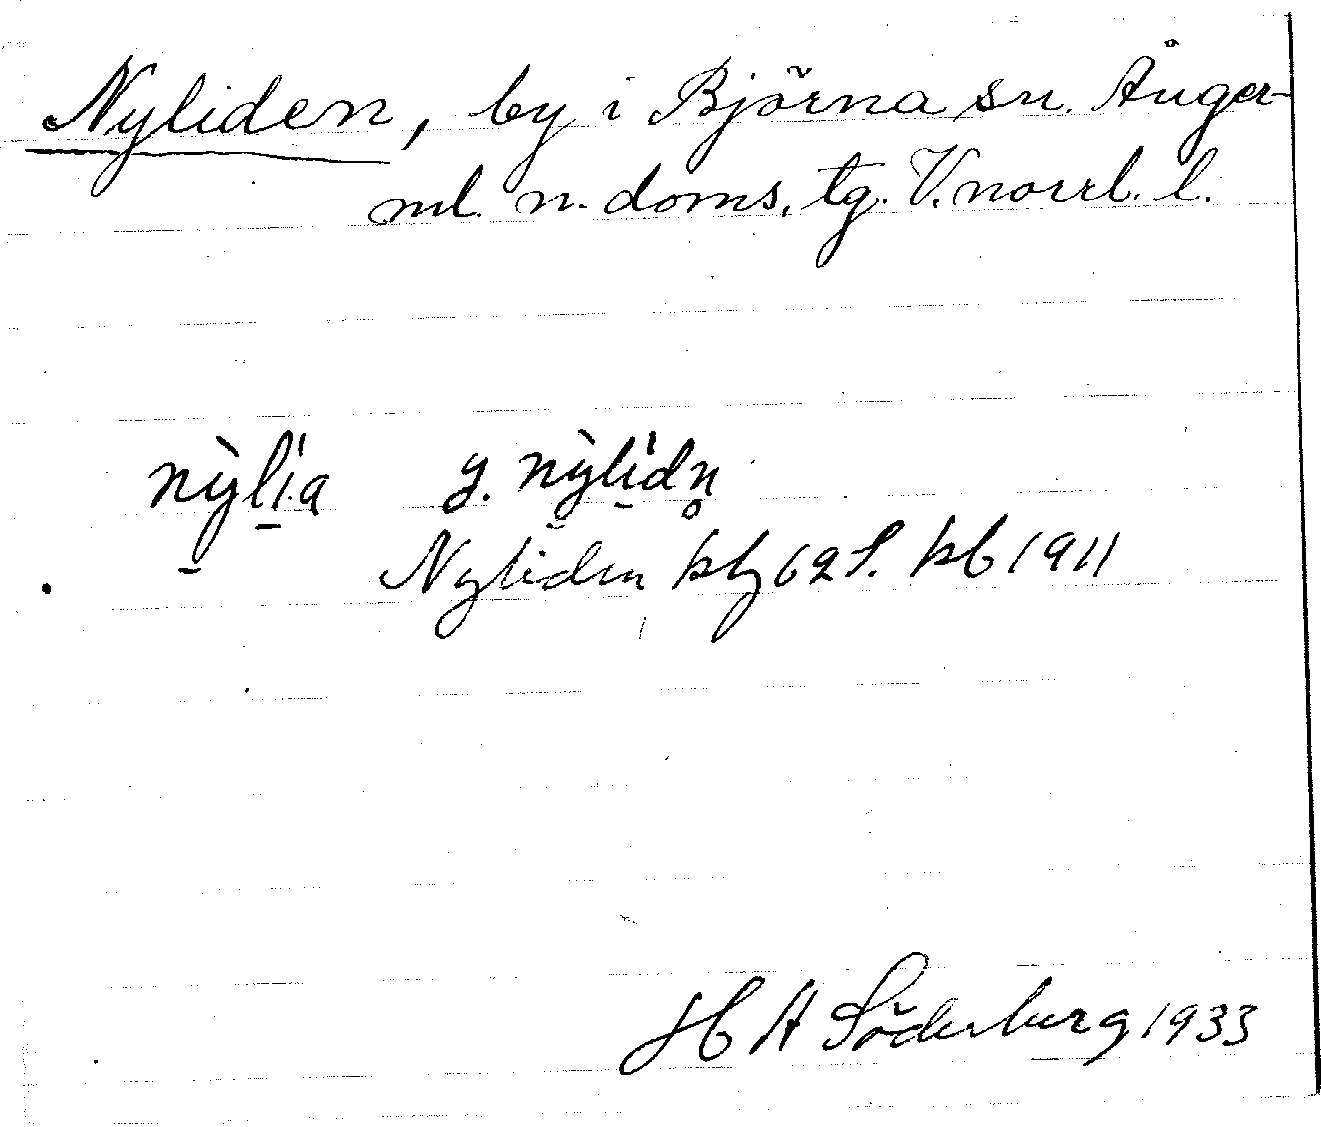 Nyliden, by i Björna sn. Ånger-
ml. n. doms. tg. V. norrl. l.
nỳlía y. nỳlídn̥
Nyliden kbg 62 S. kb 1911
H A Söderberg 1933